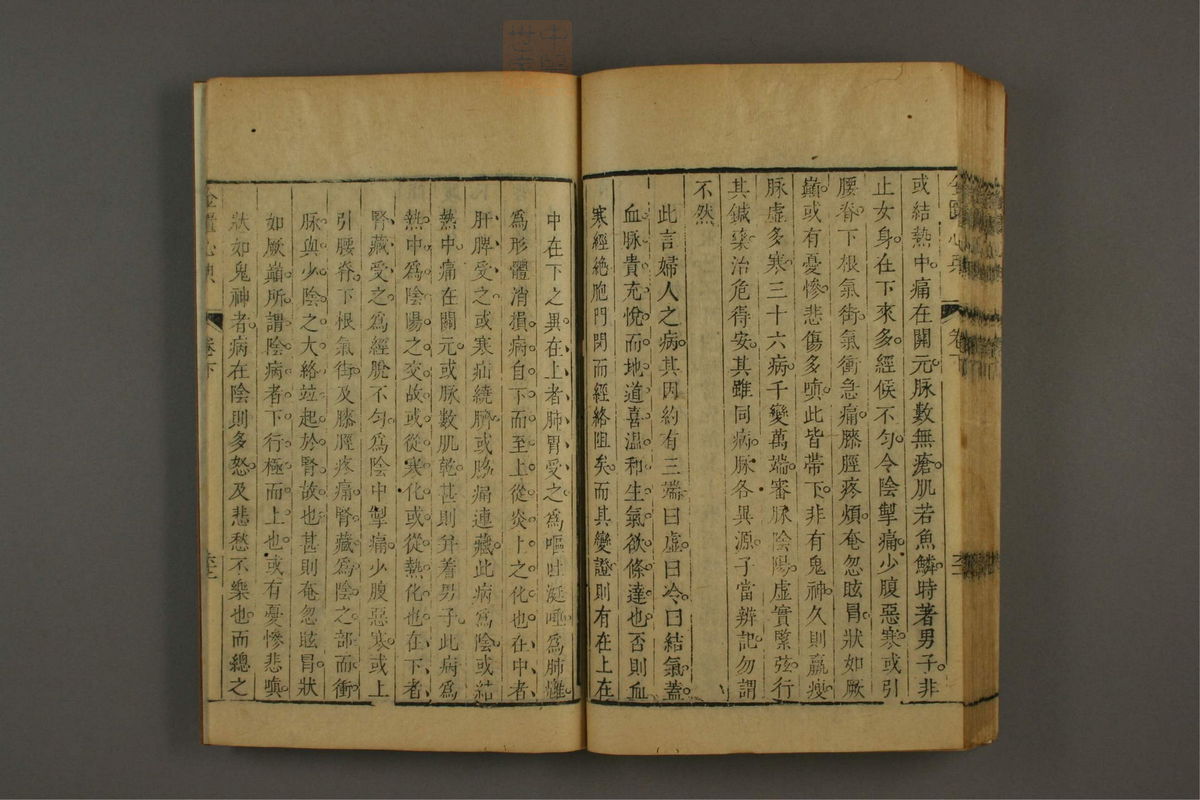 或結熱中痛在關元脉數無瘡肌若魚鱗時著男子非
止女身在下來多經候不勻令陰掣痛少腹惡寒或引
腰脊下根氣街氣衝急痛膝脛疼煩奄忽眩冒狀如厥
巔或有憂慘悲傷多嗔此皆帶下非有鬼神久則羸瘦
脉虛多寒三十六病千變萬端審脉陰陽虛實緊弦行
其鍼藥治危得安其雖同病脉各異源子當辨記勿謂
不然
此言婦人之病其因約有三端曰虛曰冷曰結氣蓋
血脉貴充悅而地道喜溫和生氣欲條達也否則血
寒經絶胞門閉而經絡阻矣而其變證則有在上在
中在下之異在上者肺胃受之爲嘔吐涎唾爲肺癰
爲形體消損病自下而至上從炎上之化也在中者
肝脾受之或寒疝繞臍或脇痛連藏此病爲陰或結
熱中痛在關元或脉數肌乾甚則幷着男子此病爲
熱中爲陰陽之交故或從寒化或從熱化也在下者
腎藏受之爲經脫不勻爲陰中掣痛少腹惡寒或上
引腰脊下根氣街及膝脛疼痛腎藏爲陰之部而衝
脉與少陰之大絡竝起於腎故也甚則奄忽眩冒狀
如厥巔所謂陰病者下行極而上也或有憂慘悲嗔
狀如鬼神者病在陰則多怒及悲愁不樂也而總之
卷下